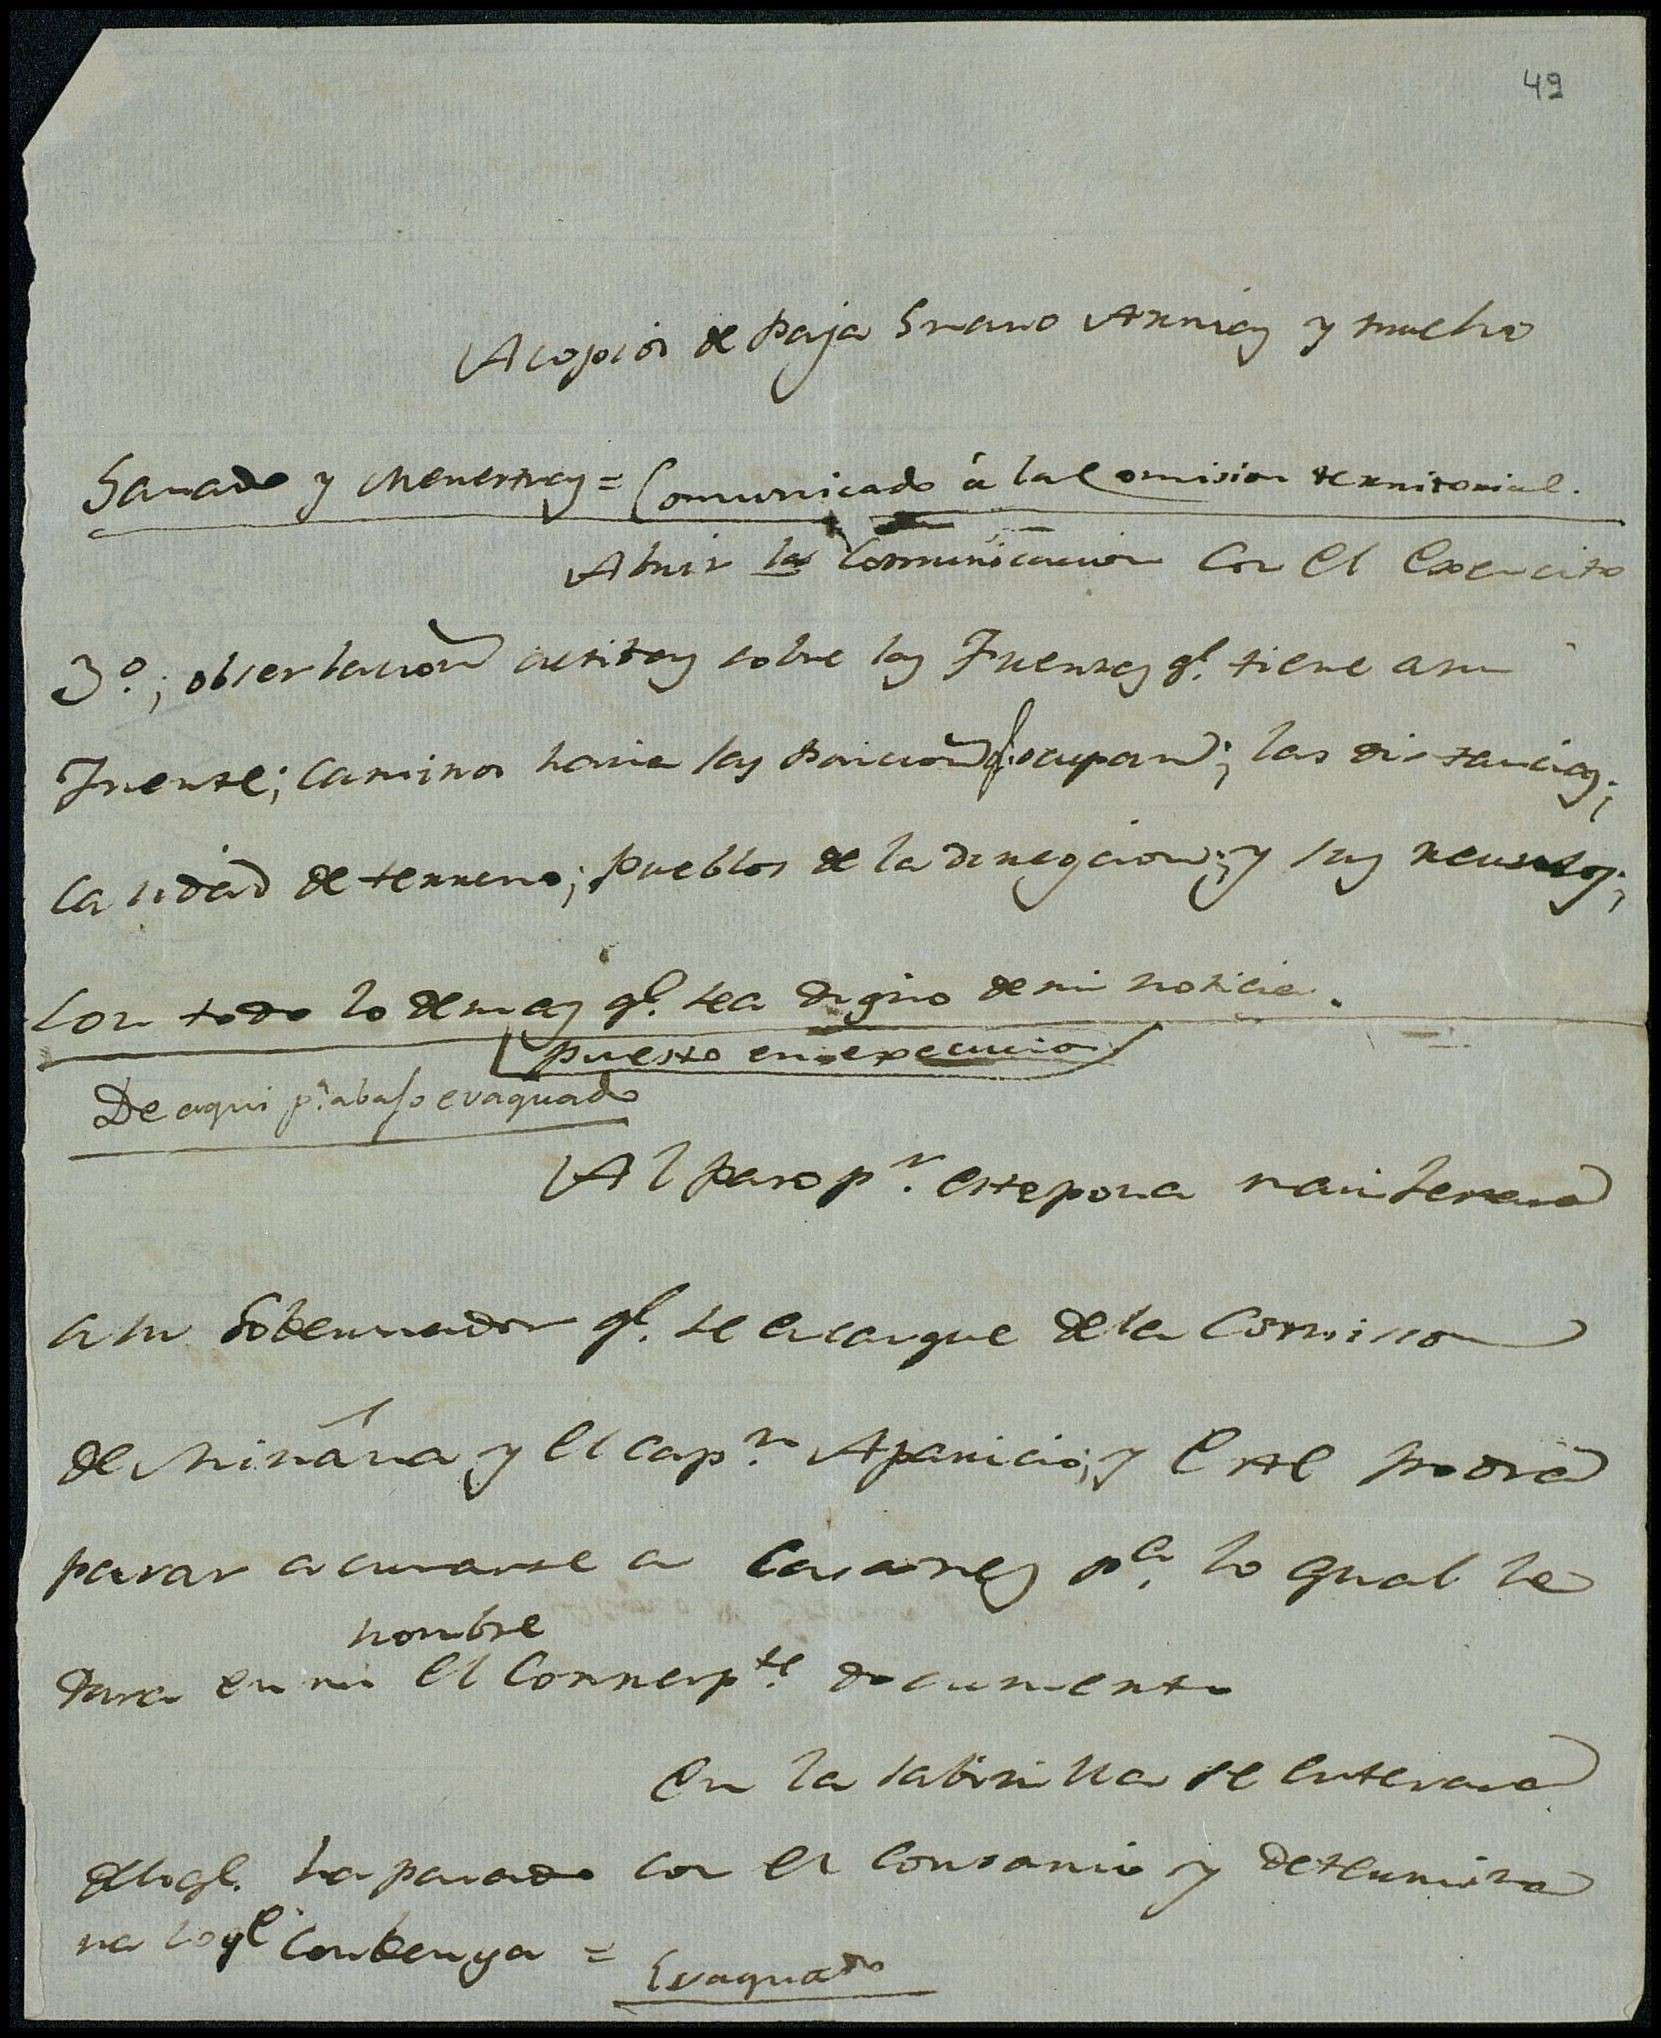 49
Acopios de paja Grano Arnics y mucho
Ganado y Menestras = Comunicado á la Comision territorial.
Abrir la Comunicacion con el Exercito
3º; obserbacion actibas sobre las Fuerzas qe. tiene a su
Frente; caminos hacia las Posicions qe. ocupan; las distancias;
calidad de terreno; pueblos de la direccion; y sus recursos;
con todo lo demas qe. sea digno de mi noticia.
puesto en execucion
De aqui pa. abajo evaquado
Al paso pr. estepona
a su Gobernador qe. se encargue de la Comision
de Miñána y el capn. Aparicio; y este podra
pasar a curarse a Casares pa. lo qual le
nombre
dara en mi el Correspte. documento
En la sabinilla se enterara
de lo qe. ha pasado con el Corsario y determina
ra lo qe conbenga = Evaquado